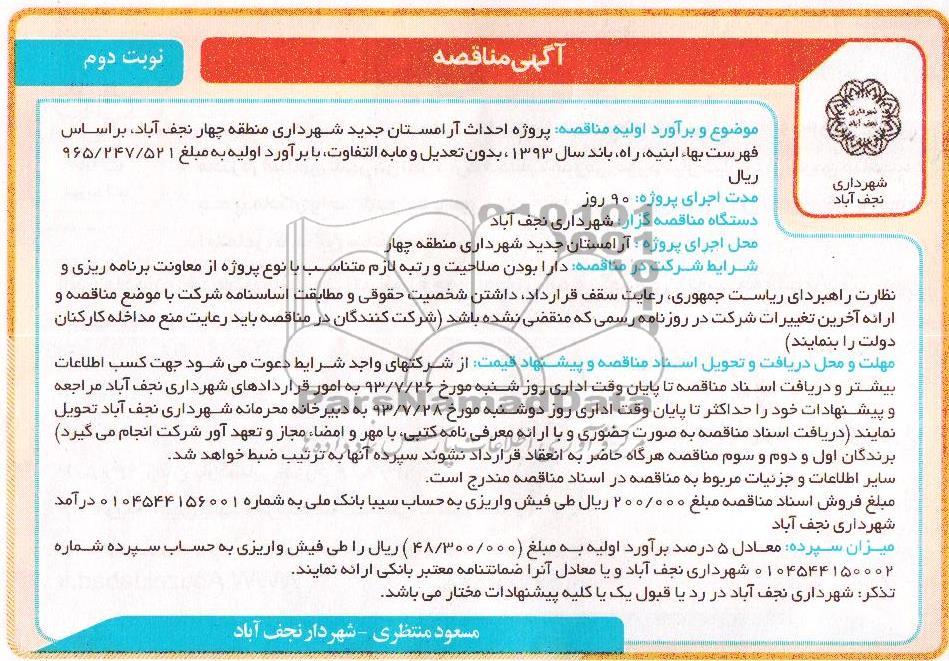 آگهی مناقصه
نوبت دوم
شهرداری
نجف آباد
شهرداری
نجف آباد
موضوع و برآورد اولیه مناقصه: پروژه احداث آرامستان جدید شهرداری منطقه چهار نجف آباد، براساس
فهرست بهاء ابنیه، راه، باند سال ۱۳۹۳، بدون تعدیل و مابه التفاوت، با برآورد اولیه به مبلغ ۹۶۵/۲۴۷/۵۲۱
ریال
مدت اجرای پروژه: ۹۰ روز
دستگاه مناقصه گزار: شهرداری نجف آباد
محل اجرای پروژه : آرامستان جدید شهرداری منطقه چهار
شرایط شرکت در مناقصه: دارا بودن صلاحیت و رتبه لازم متناسب با نوع پروژه از معاونت برنامه ریزی و
نظارت راهبردای ریاست جمهوری، رعایت سقف قرارداد، داشتن شخصیت حقوقی و مطابقت اساسنامه شرکت با موضع مناقصه و
ارائه آخرین تغییرات شرکت در روزنامه رسمی که منقضی نشده باشد (شرکت کنندگان در مناقصه باید رعایت منع مداخله کارکنان
دولت را بنمایند)
مهلت و محل دریافت و تحویل اسناد مناقصه و پیشنهاد قیمت: از شرکتهای واجد شرایط دعوت می شود جهت کسب اطلاعات
بیشتر و دریافت اسناد مناقصه تا پایان وقت اداری روز شنبه مورخ ۹۳/۷/۲۶ به امور قراردادهای شهرداری نجف آباد مراجعه
و پیشنهادات خود را حداکثر تا پایان وقت اداری روز دوشنبه مورخ ۹۳/۷/۲۸ به دبیرخانه محرمانه شهرداری نجف آباد تحویل
نمایند (دریافت اسناد مناقصه به صورت حضوری و با ارائه معرفی نامه کتبی، با مهر و امضاء مجاز و تعهد آور شرکت انجام می گیرد)
برندگان اول و دوم و سوم مناقصه هرگاه حاضر به انعقاد قرارداد نشوند سپرده آنها به ترتیب ضبط خواهد شد.
سایر اطلاعات و جزئیات مربوط به مناقصه در اسناد مناقصه مندرج است.
مبلغ فروش اسناد مناقصه مبلغ ۲۰۰/۰۰۰ ریال طی فیش واریزی به حساب سیبا بانک ملی به شماره ۰۱۰۴۵۴۴۱۵۶۰۰۱ درآمد
شهرداری نجف آباد
میزان سپرده: معادل ۵ درصد برآورد اولیه به مبلغ (۴۸/۳۰۰/۰۰۰ ) ریال را طی فیش واریزی به حساب سپرده شماره
۰۱۰۴۵۴۴۱۵۰۰۰۲ شهرداری نجف آباد و یا معادل آنرا ضمانتنامه معتبر بانکی ارائه نمایند.
تذکر: شهرداری نجف آباد در رد یا قبول یک یا کلیه پیشنهادات مختار می باشد.
مسعود منتظری - شهردار نجف آباد
ParsNamadData